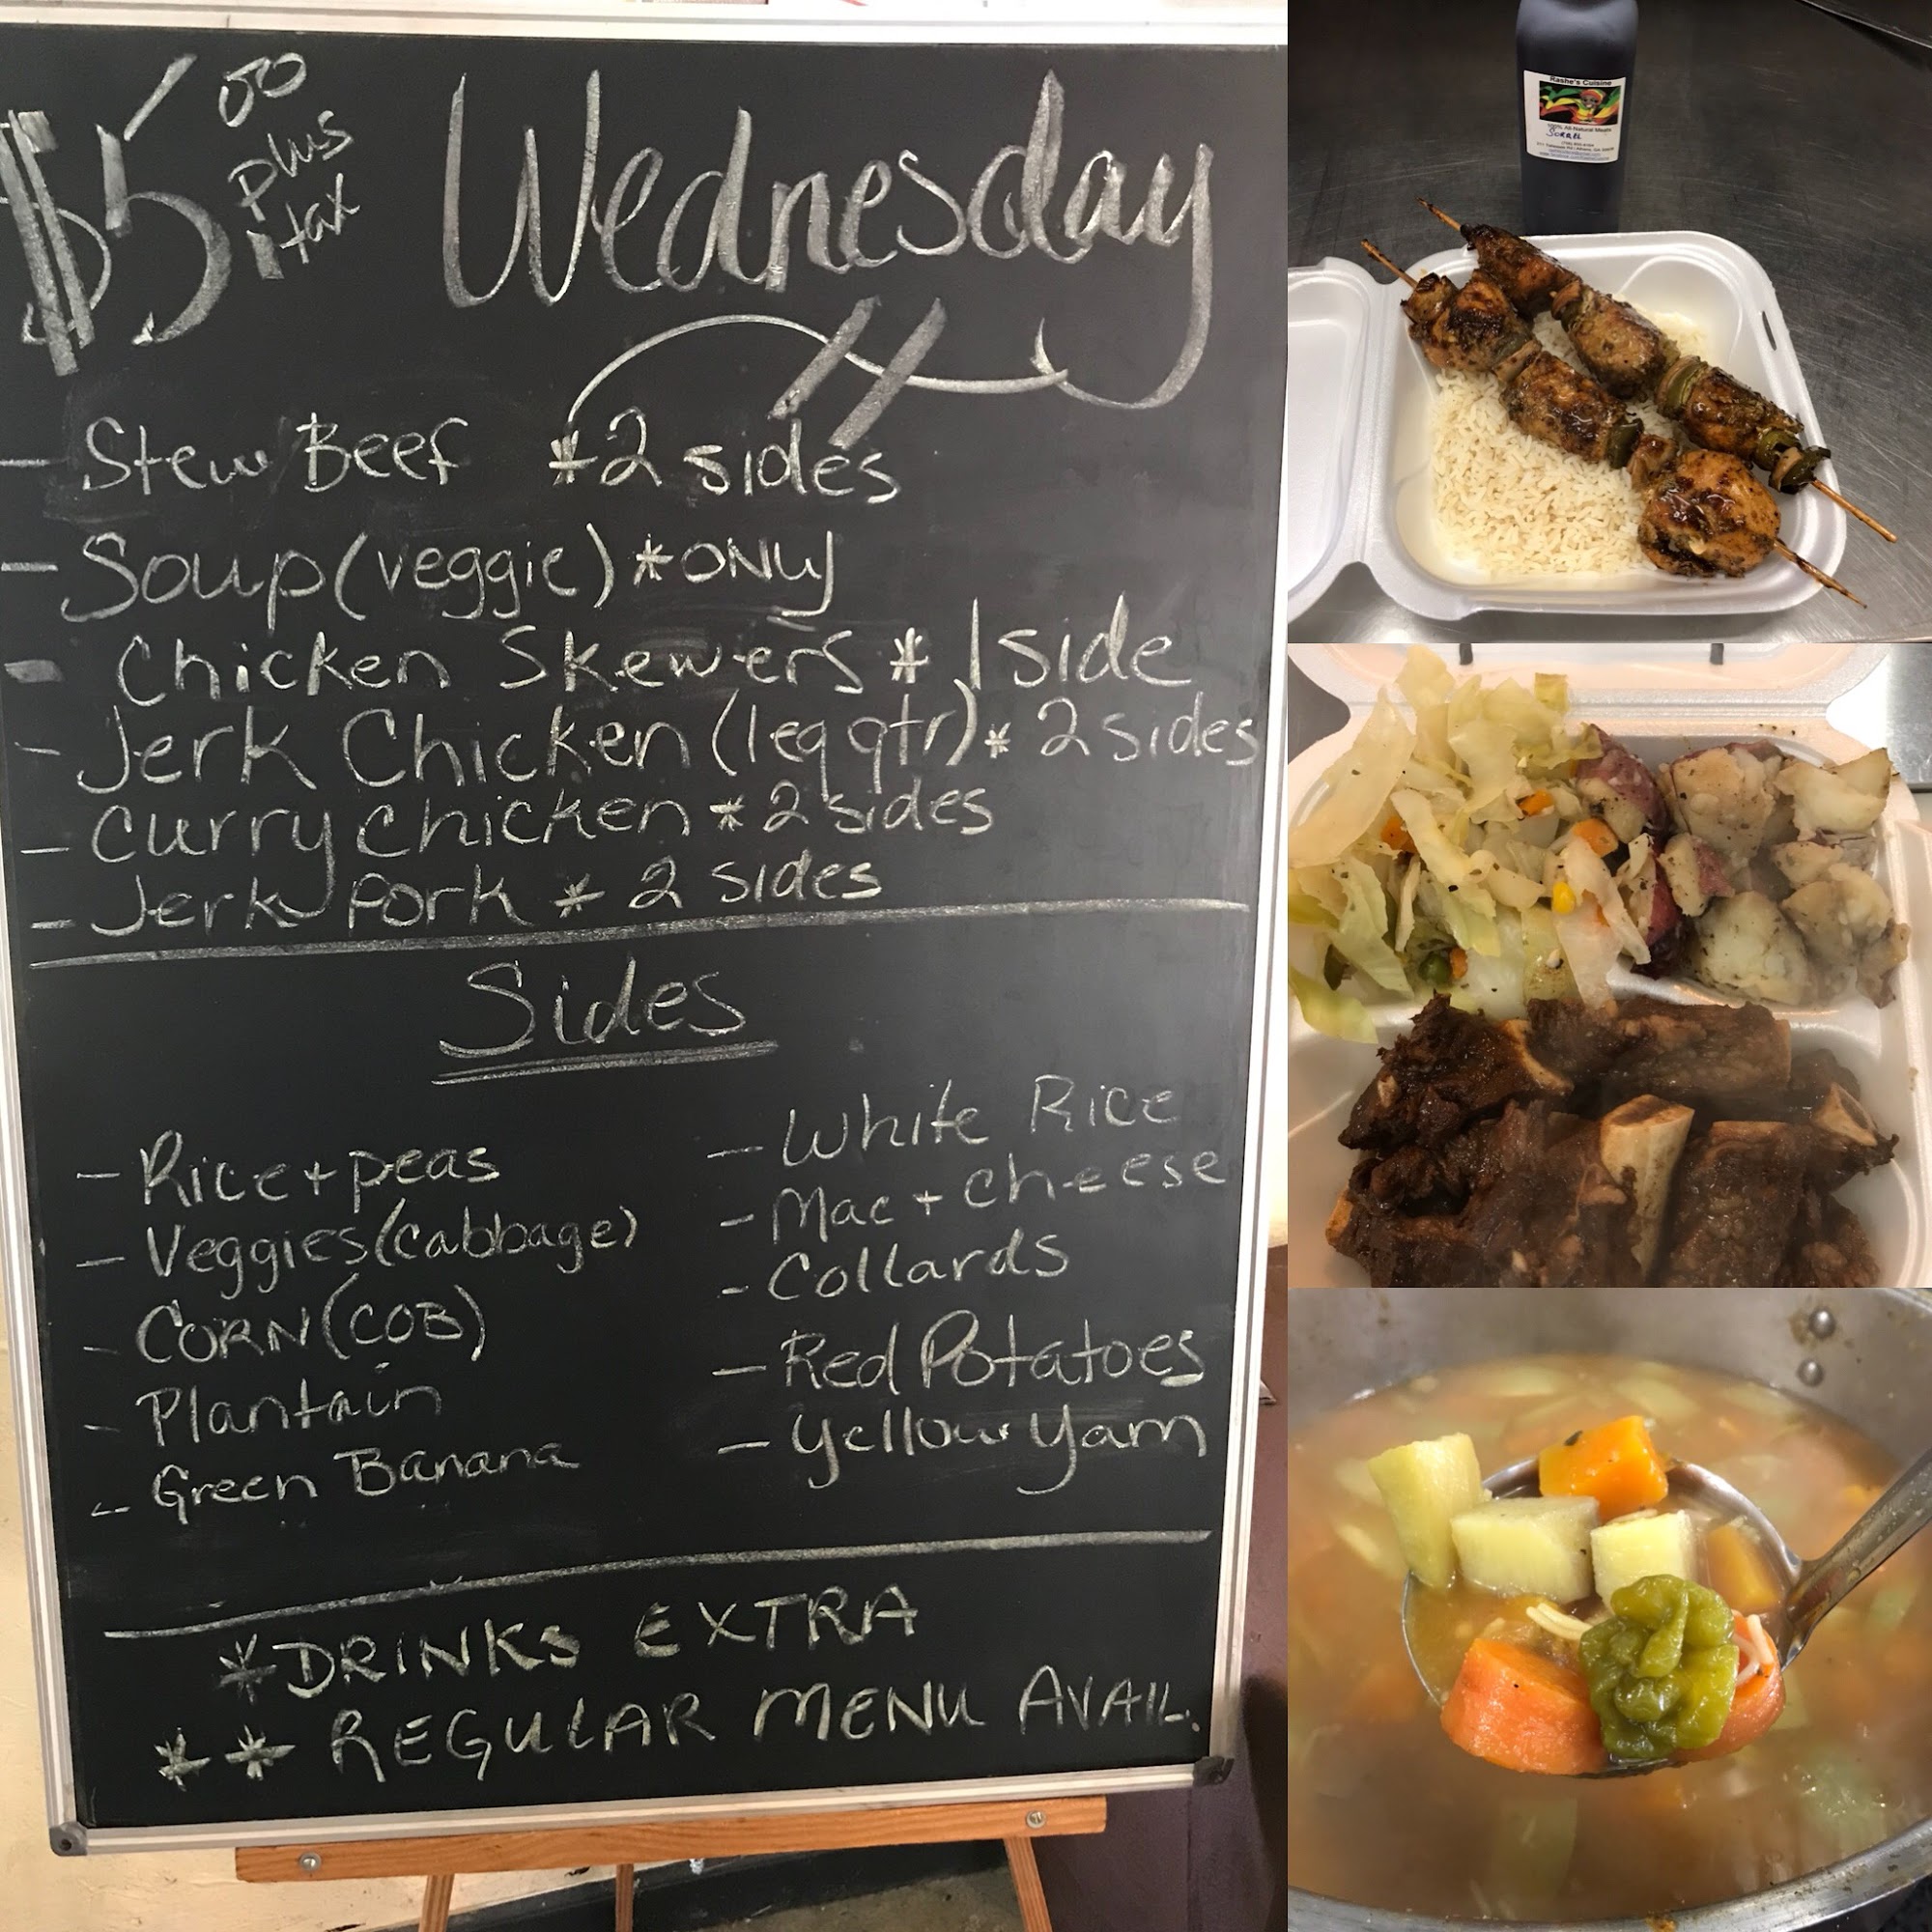 $5.00 plus tax
Wednesday
- Stew Beef *2 sides
- Soup (veggie) *ONLY
- Chicken Skewers * 1 side
- Jerk Chicken (leg qtr) * 2 sides
- Curry Chicken * 2 sides
- Jerk Pork * 2 sides
Sides
- Rice + peas
- Veggies (cabbage)
- CORN (COB)
- Plantain
- Green Banana
- White Rice
- Mac + cheese
- Collards
- Red Potatoes
- Yellow Yam
*DRINKS EXTRA
** REGULAR MENU AVAIL.
Rashe's Cuisine
100% All-Natural Meats
SORREL